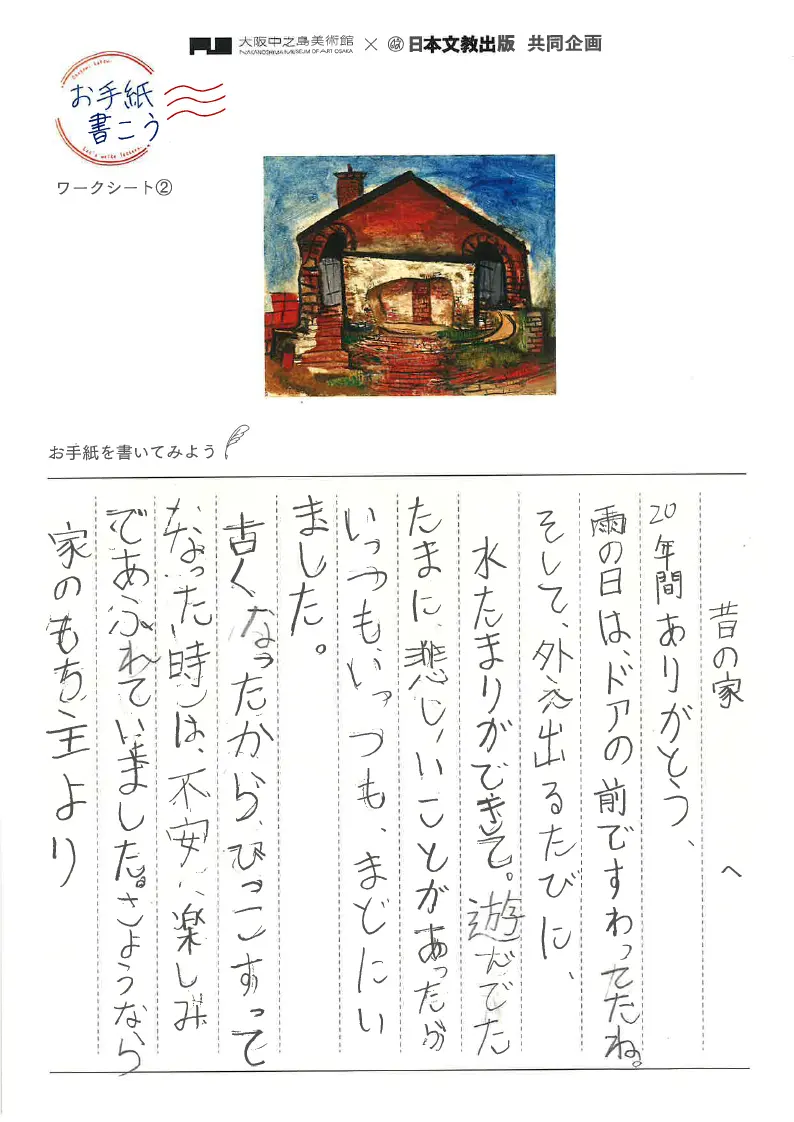 大阪中之島美術館 × 日本文教出版 共同企画
NAKANOSHIMA MUSEUM OF ART OSAKA
お手紙
書こう
Let's write letters.
ワークシート②
お手紙を書いてみよう
昔の家 へ
20年間ありがとう、
雨の日は、ドアの前ですわってたね。
そして、外え出るたびに、
水たまりができて。遊だでた
たまに、悲しいことがあったら
いっつも、いっつも、まどにい
ました。
古くなったから、ひっこすって
なった時は、不安、楽しみ
であふれていました。さようなら
家のもち主より